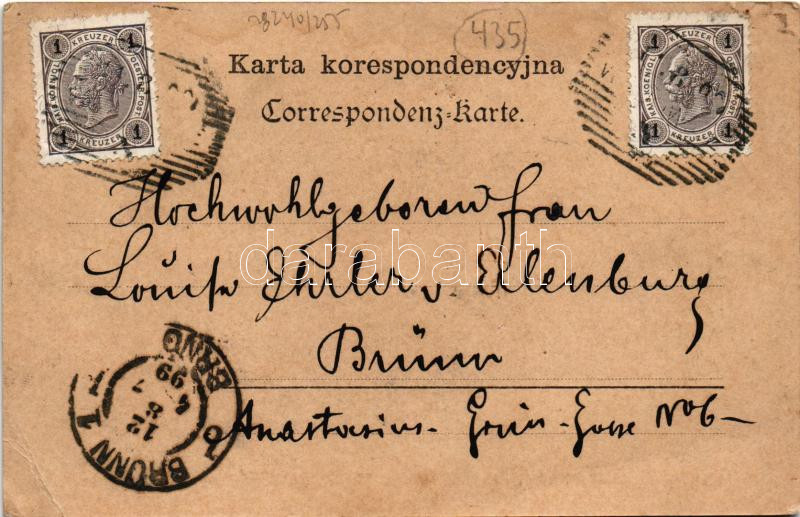 28240/255
435
1 KREUZER 1
KAIS. KOENIGL. OESTERR. POST.
1 KREUZER 1
1 KREUZER 1
KAIS. KOENIGL. OESTERR. POST.
1 KREUZER 1
Karta korespondencyjna
Correspondenz-Karte.
Hochwohlgeboren Frau
Louise v. Eilenburg
Brünn
Anastasius-Grün-Gasse No 6
darabanth
BRÜNN 1
BRNO
12
8
4
99